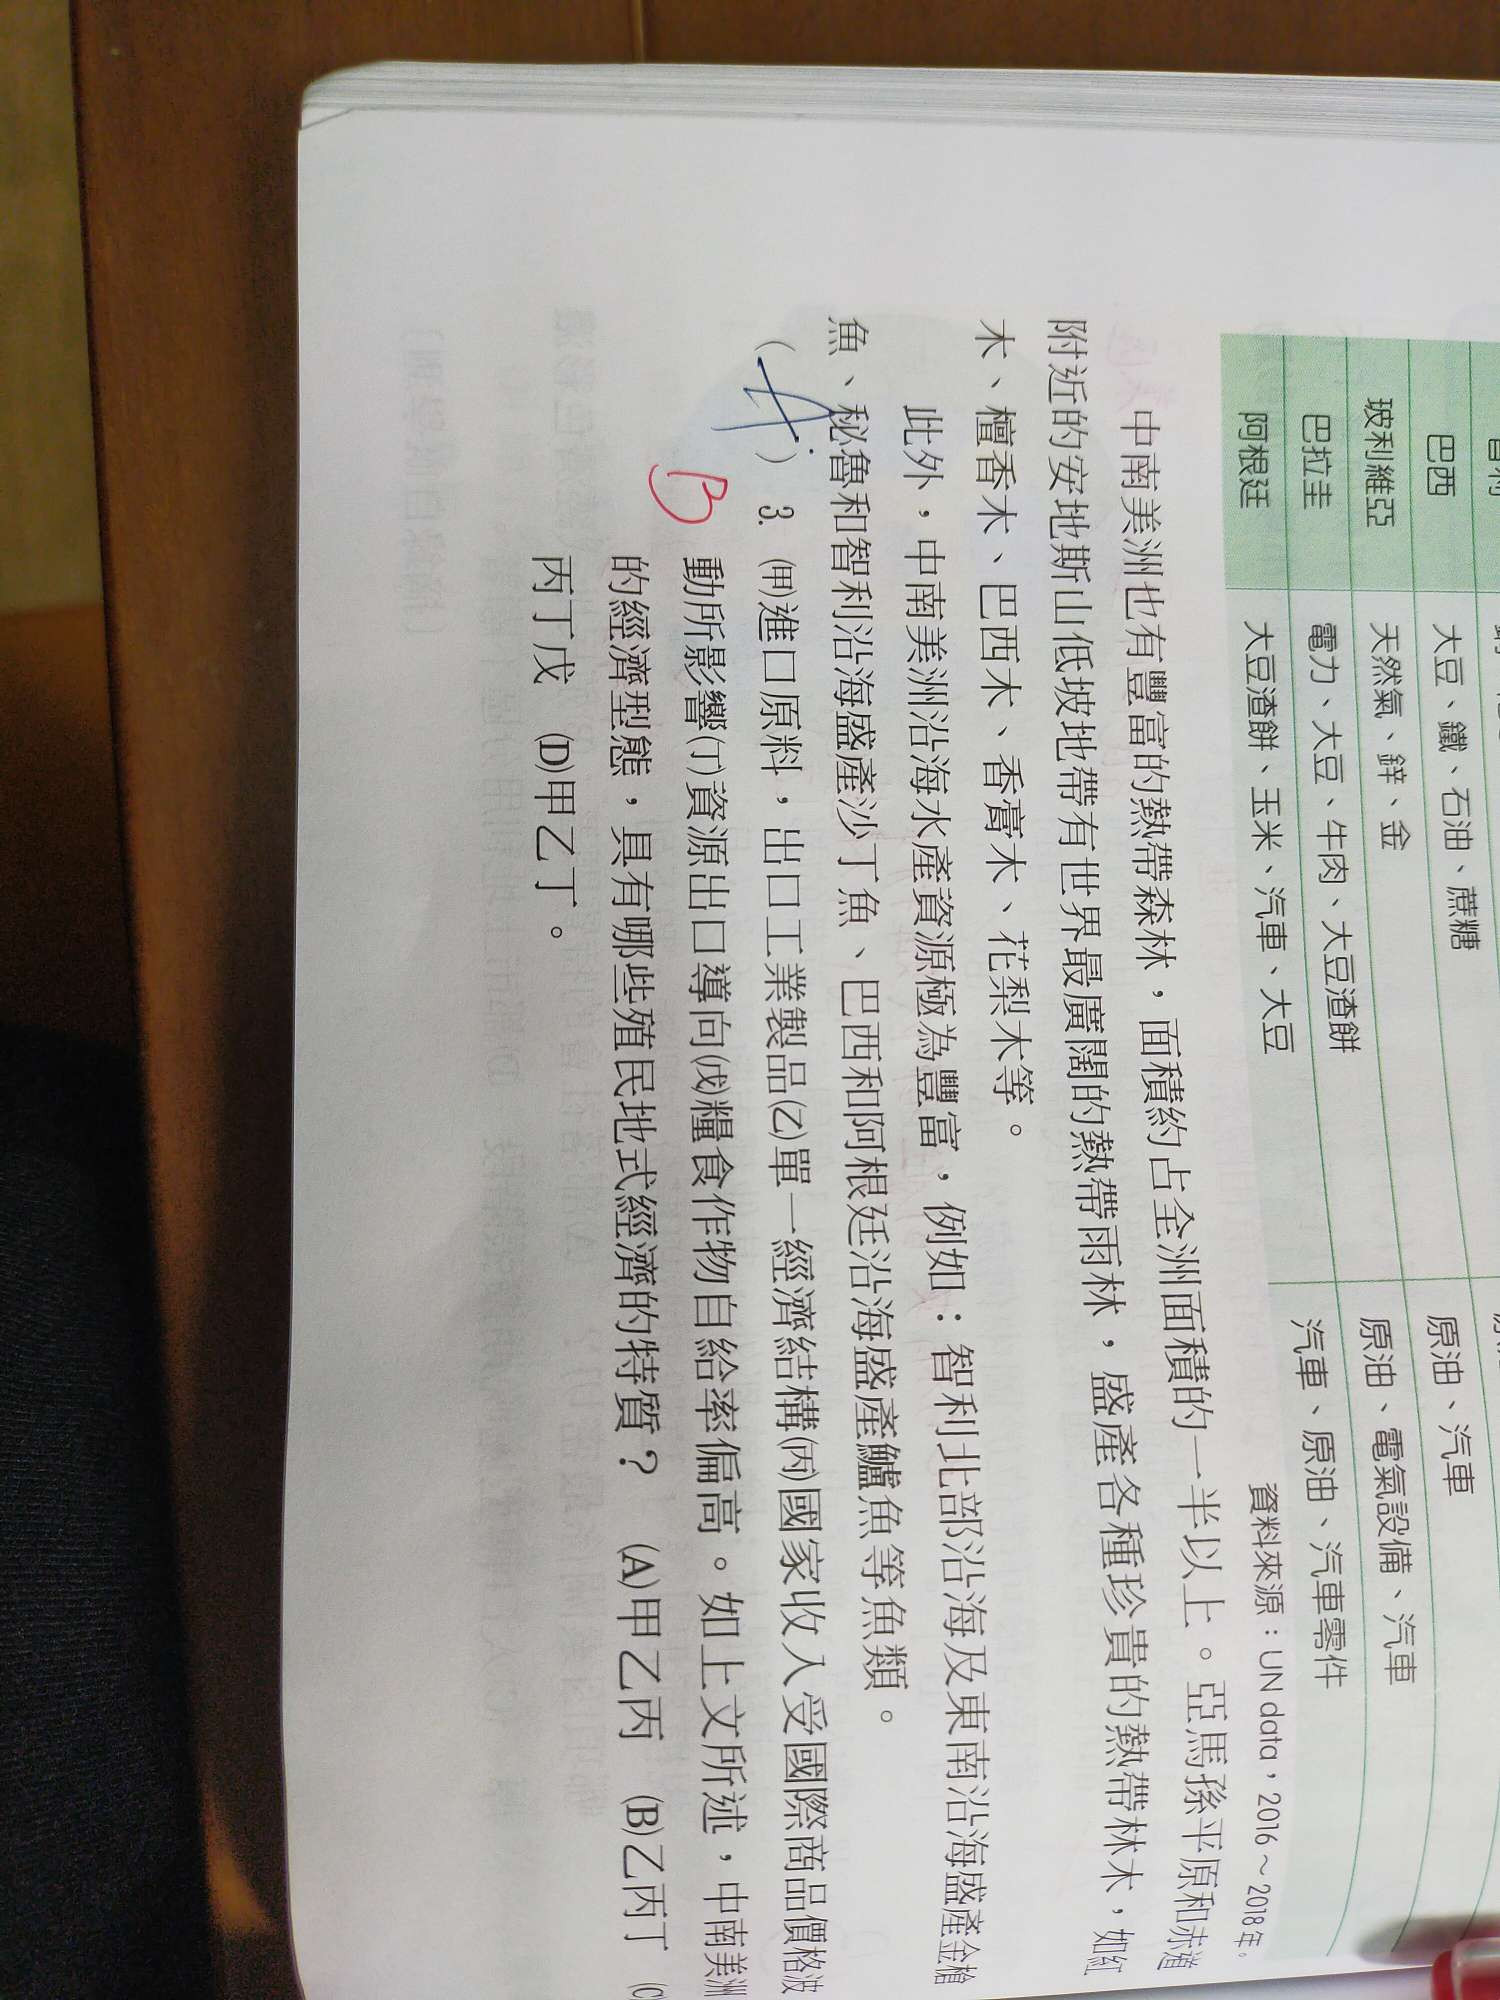 巴西 大豆、鐵、石油、蔗糖 原油、汽車
玻利維亞 天然氣、鋅、金 原油、電氣設備、汽車
巴拉圭 電力、大豆、牛肉、大豆渣餅 汽車、原油、汽車零件
阿根廷 大豆渣餅、玉米、汽車、大豆
資料來源：UN data，2016～2018年。
中南美洲也有豐富的熱帶森林，面積約占全洲面積的一半以上。亞馬孫平原和赤道
附近的安地斯山低坡地帶有世界最廣闊的熱帶雨林，盛產各種珍貴的熱帶林木，如紅
木、檀香木、巴西木、香膏木、花梨木等。
此外，中南美洲沿海水產資源極為豐富，例如：智利北部沿海及東南沿海盛產金槍
魚、秘魯和智利沿海盛產沙丁魚、巴西和阿根廷沿海盛產鱸魚等魚類。
（A）3. ㈙進口原料，出口工業製品(乙)單一經濟結構(丙)國家收入受國際商品價格波
B
動所影響(丁)資源出口導向(戊)糧食作物自給率偏高。如上文所述，中南美洲
的經濟型態，具有哪些殖民地式經濟的特質？ (A)甲乙丙 (B)乙丙丁 (C)
丙丁戊 (D)甲乙丁。